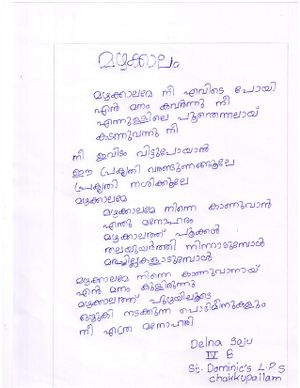 മഴക്കാലം
മഴക്കാലമേ നീ എവിടെ പോയി
എൻ മനം കവർന്നു നീ
എന്നുള്ളിലെ പൂന്തെന്നലായ്
കടന്നുവന്നു നീ
നീ ഇവിടം വിട്ടുപോയാൽ
ഈ പ്രകൃതി വരണ്ടുണങ്ങൂലേ
പ്രകൃതി നശിക്കൂലേ
മഴക്കാലമേ
മഴക്കാലമേ നിന്നെ കാണുവാൻ
എന്തു മനോഹരം
മഴക്കാലത്ത് പൂക്കൾ
തലയുയർത്തി നിന്നാടുമ്പോൾ
മരച്ചില്ലകളാടുമ്പോൾ
മഴക്കാലമേ നിന്നെ കാണുവാനായ്
എൻ മനം കുളിരുന്നു
മഴക്കാലത്ത് പുഴയിലൂടെ
ഒഴുകി നടക്കുന്ന പൊടിമീനുകളും
നീ എത്ര മനോഹരി
Delna Saju
IV B
St. Dominic's L.P.S
chakkupallam